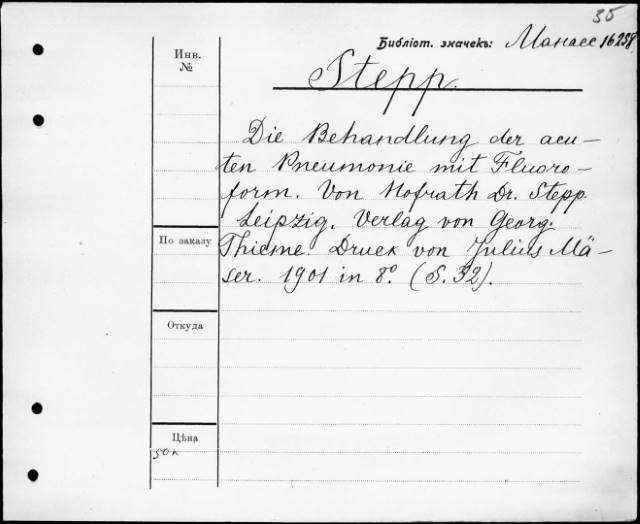 35
Библіот. значекъ: Манасс 16258
Инв.
№
Stepp.
Die Behandlung der acu-
ten Pneumonie mit Fluoro-
form. Von Hofrath Dr. Stepp.
Leipzig. Verlag von Georg.
По заказу
Thieme. Druck von Julius Mä-
ser. 1901 in 8º. (S. 32).
Откуда
Цѣна
50 к